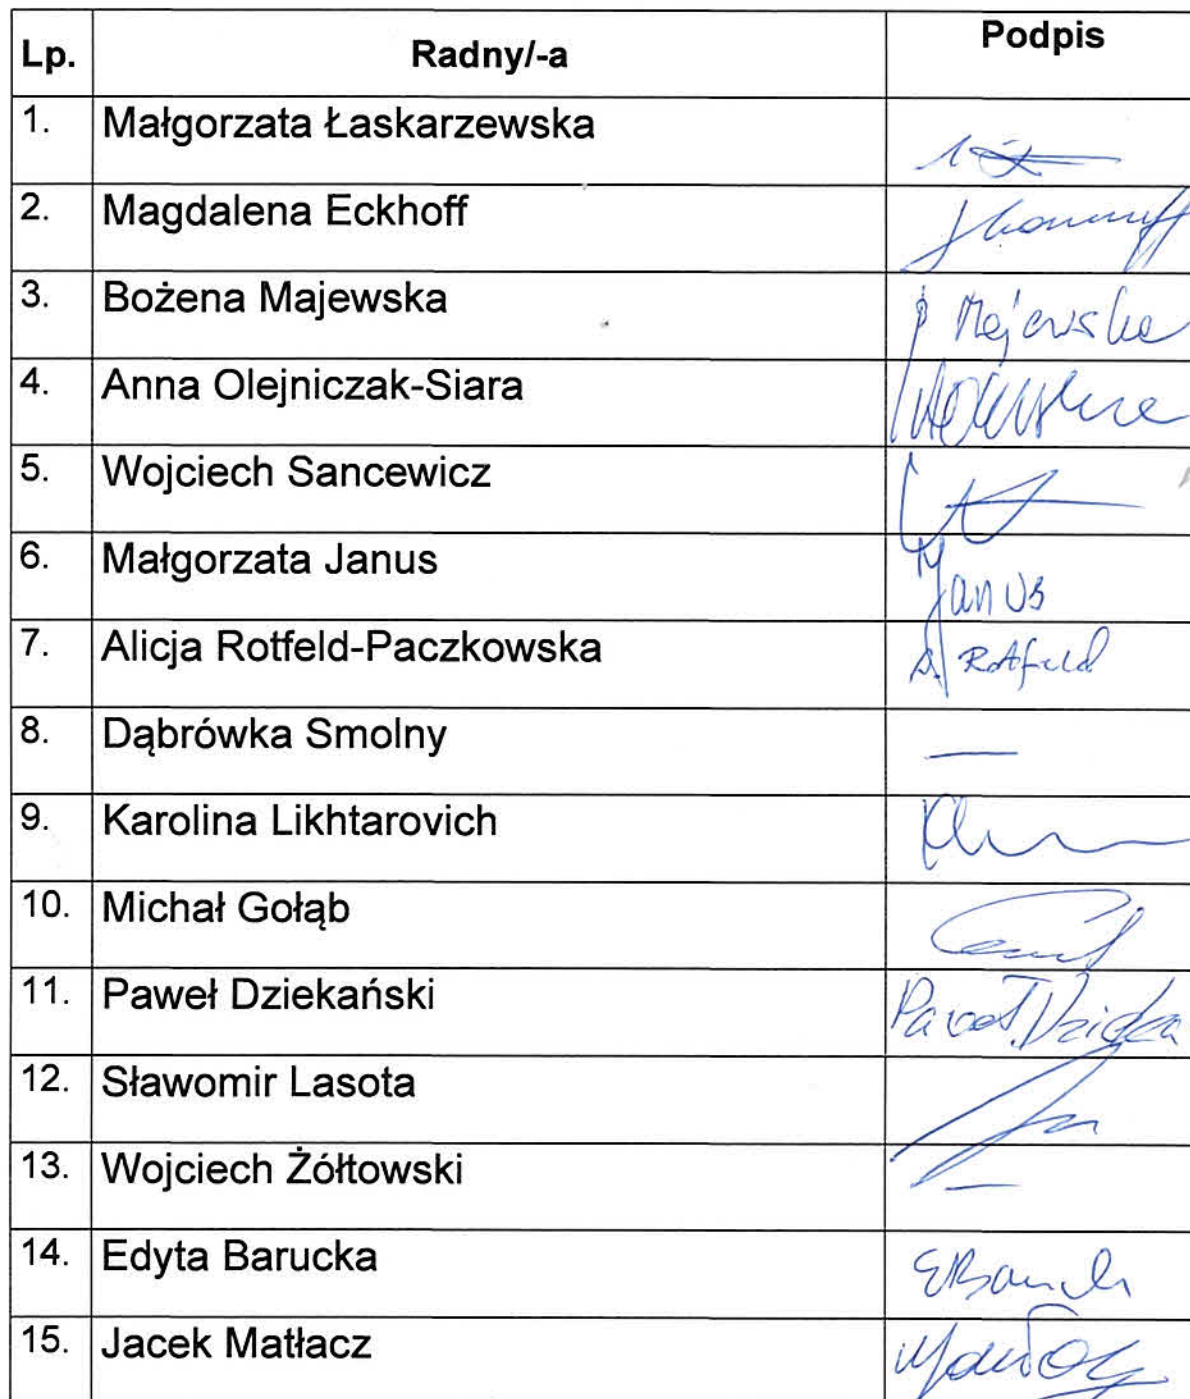 Lp. Radny/-a Podpis
1. Małgorzata Łaskarzewska
2. Magdalena Eckhoff
3. Bożena Majewska Majewska
4. Anna Olejniczak-Siara
5. Wojciech Sancewicz
6. Małgorzata Janus M Janus
7. Alicja Rotfeld-Paczkowska A. Rotfeld
8. Dąbrówka Smolny —
9. Karolina Likhtarovich
10. Michał Gołąb
11. Paweł Dziekański Paweł
12. Sławomir Lasota
13. Wojciech Żółtowski —
14. Edyta Barucka
15. Jacek Matłacz